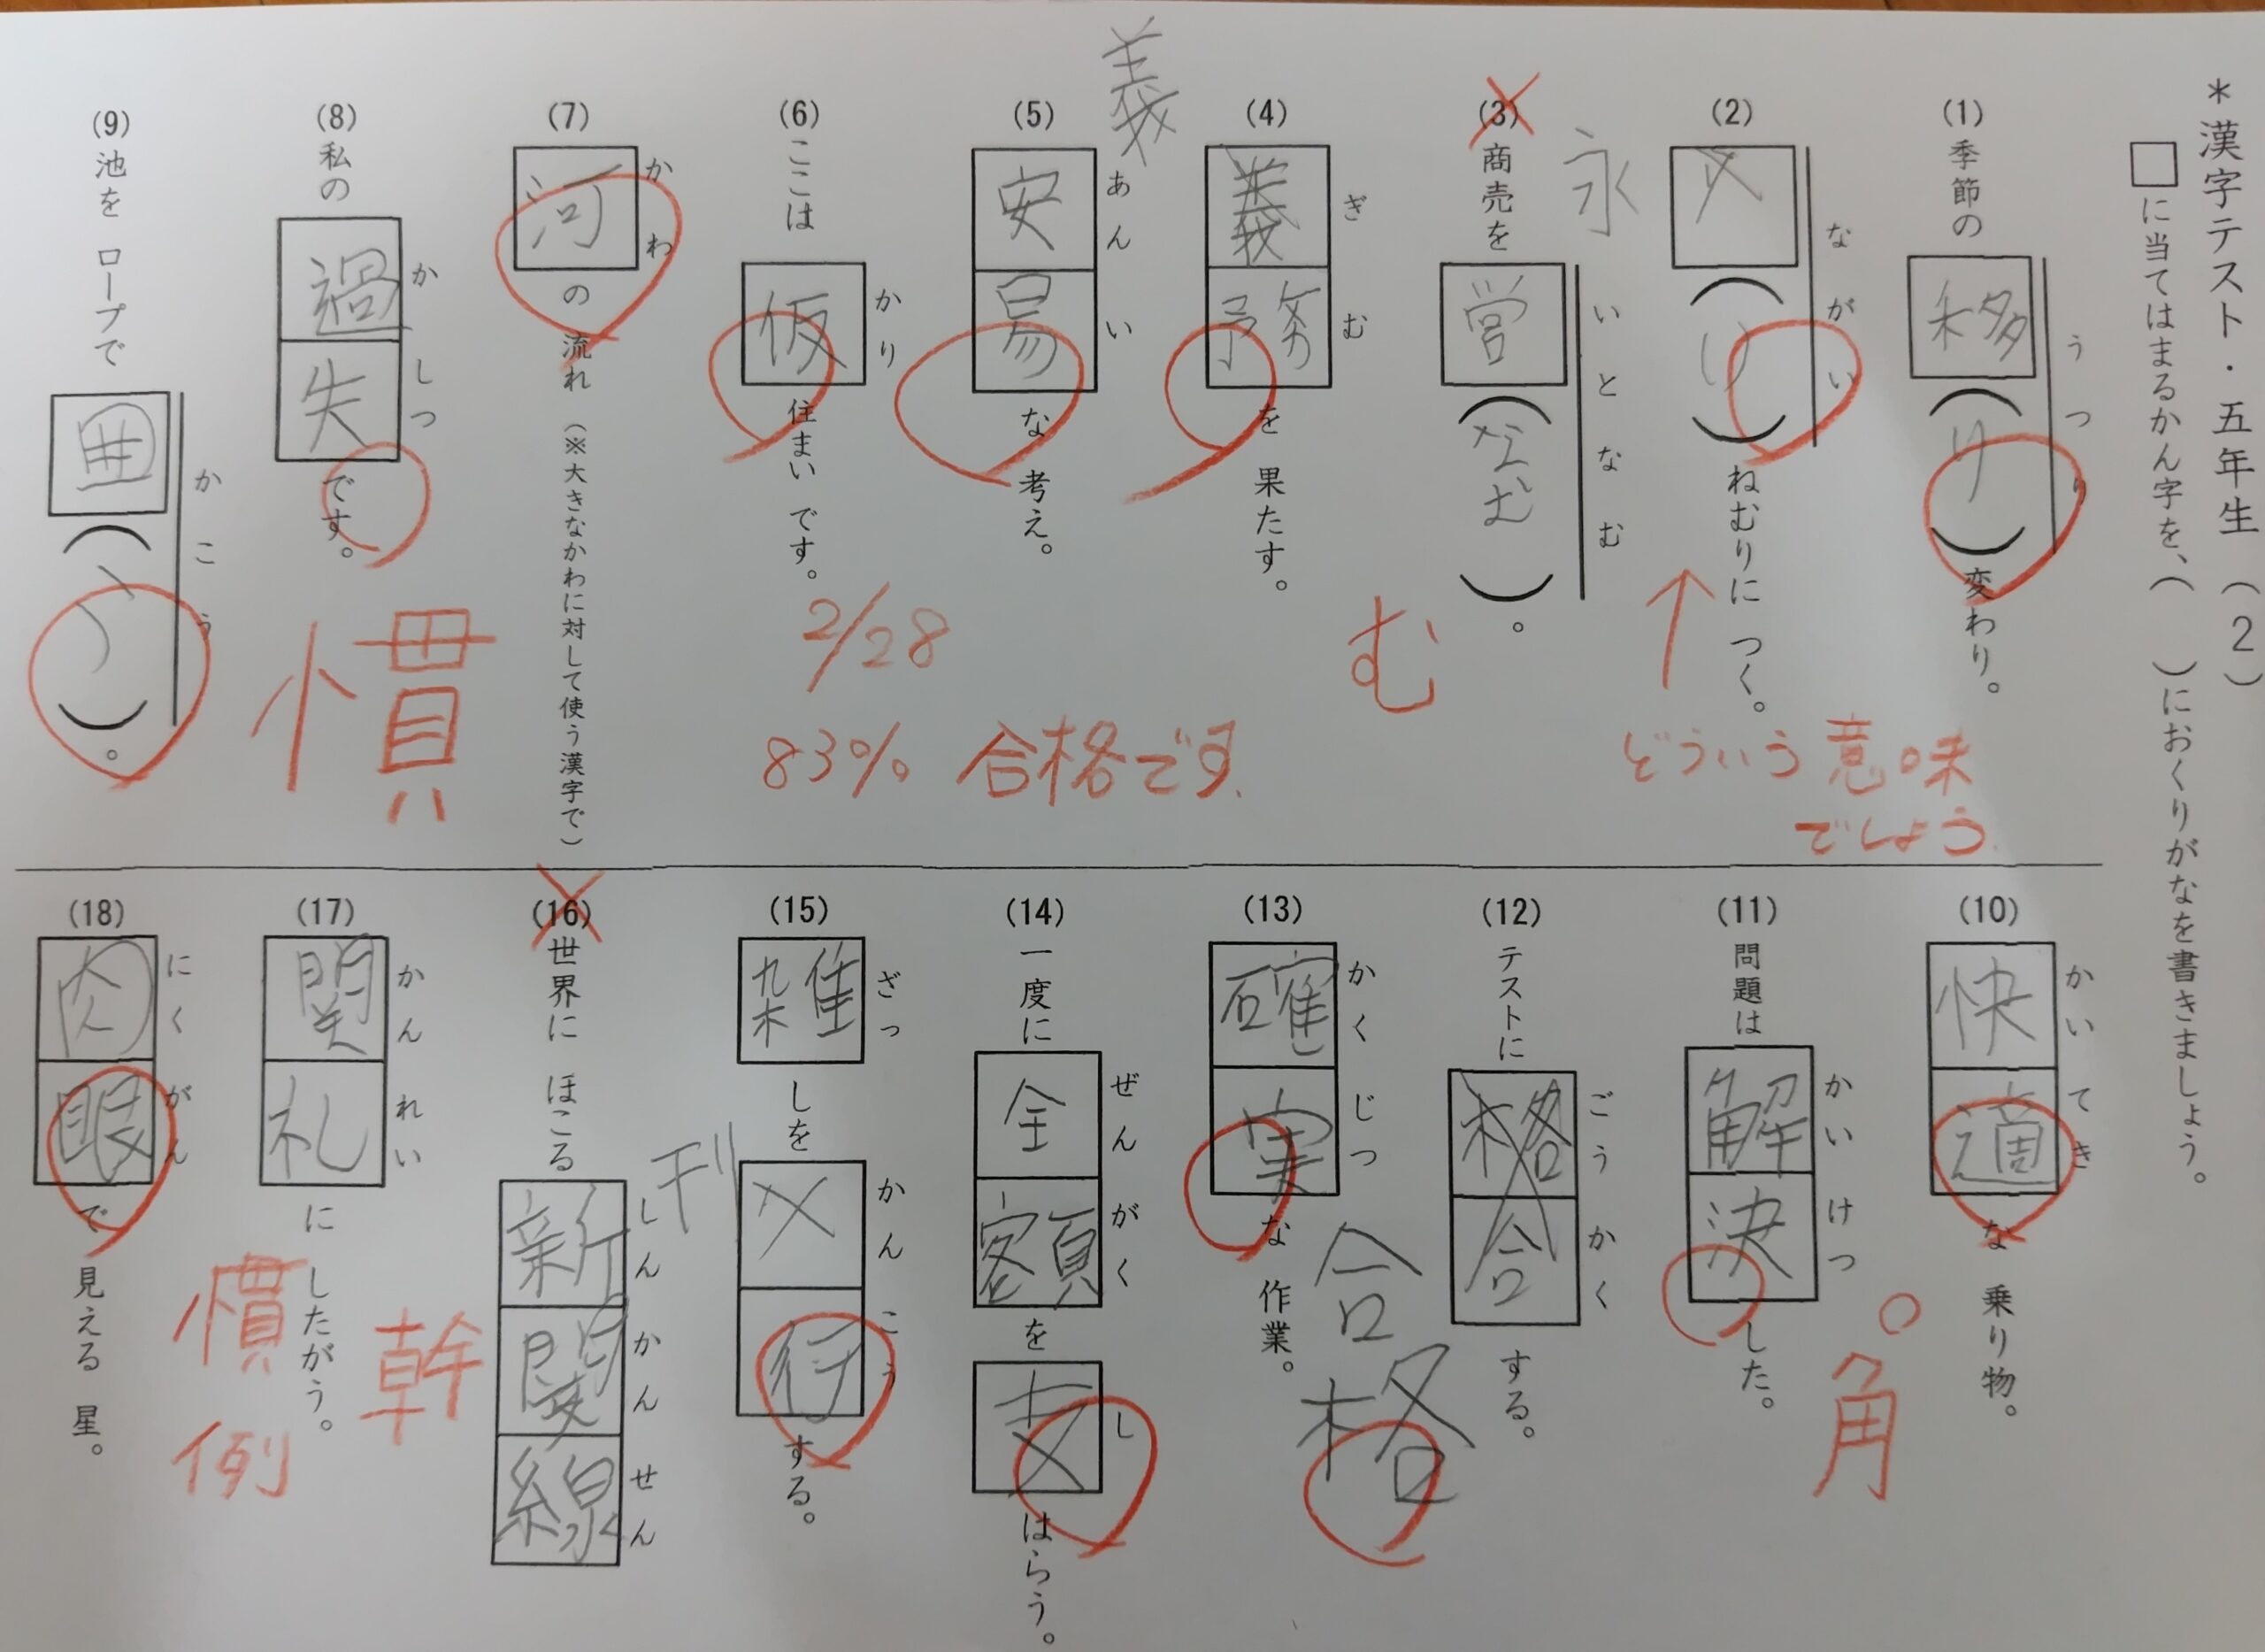 ＊漢字テスト・五年生（2）
□に当てはまるかん字を、（　）におくりがなを書きましょう。
(1) 季節の 移（り） 変わり。
うつり
(2) （い） ねむりに つく。
ながい
永
どういう意味
でしょう
(3) 商売を 営（なむ）。
いとなむ
む
(4) 義務 を 果たす。
ぎむ
義
(5) 安易 な 考え。
あんい
(6) ここは 仮 住まい です。
かり
2/28
83% 合格です
(7) 河 の 流れ （※大きなかわに対して使う漢字で）
かわ
(8) 私の 過失 です。
かしつ
慣
(9) 池を ロープで 囲（う）。
かこう
(10) 快適 な 乗り物。
かいてき
(11) 問題は 解決 した。
かいけつ
角
(12) テストに 格合 する。
ごうかく
合格
(13) 確実 な 作業。
かくじつ
(14) 一度に 全額 を 支 はらう。
ぜんがく
し
(15) 雑 しを 行 する。
ざっ
かんこう
刊
(16) 世界に ほこる 新関線
しんかんせん
幹
(17) 関礼 に したがう。
かんれい
慣例
(18) 肉眼 で 見える 星。
にくがん